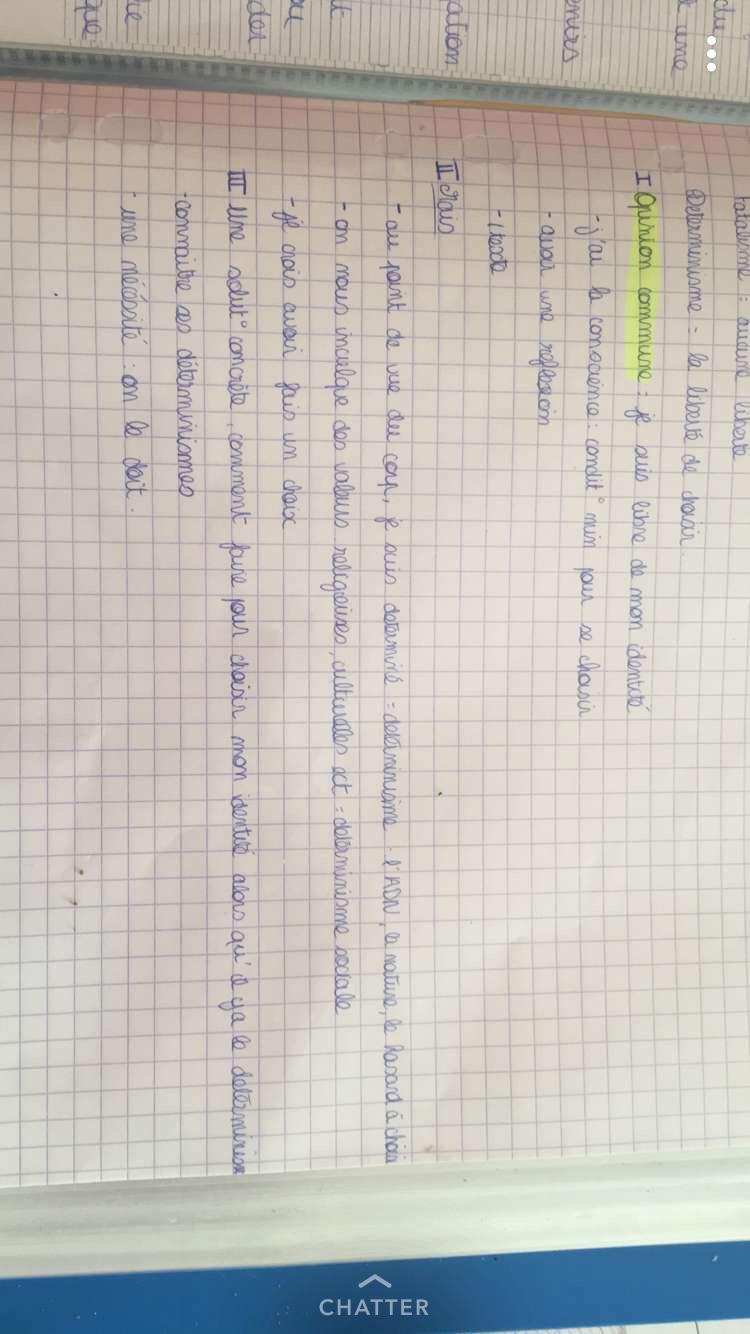 fatalisme : aucune liberté
Determinisme = la liberté de choisir.
I Opinion commune : je suis libre de mon identité
- j'ai la conscience : condit° mim pour se choisir
- avoir une reflexion
- 1 texte
II Mais
- au point de vue du corp, je suis determiné = déterminisme - l'ADN, la nature, le hasard à choisi
- on nous inculque des valeurs religieuses, culturelles ect = determinisme sociale
- je crois avoir fais un choix
III Une solut° concrète, comment faire pour choisir mon identité alors qu'il y a le determinisme
- connaitre ses déterminismes
- une nécéssité : on le doit.
du
une
enirs
ation
t
ou
des
ie
que
CHATTER